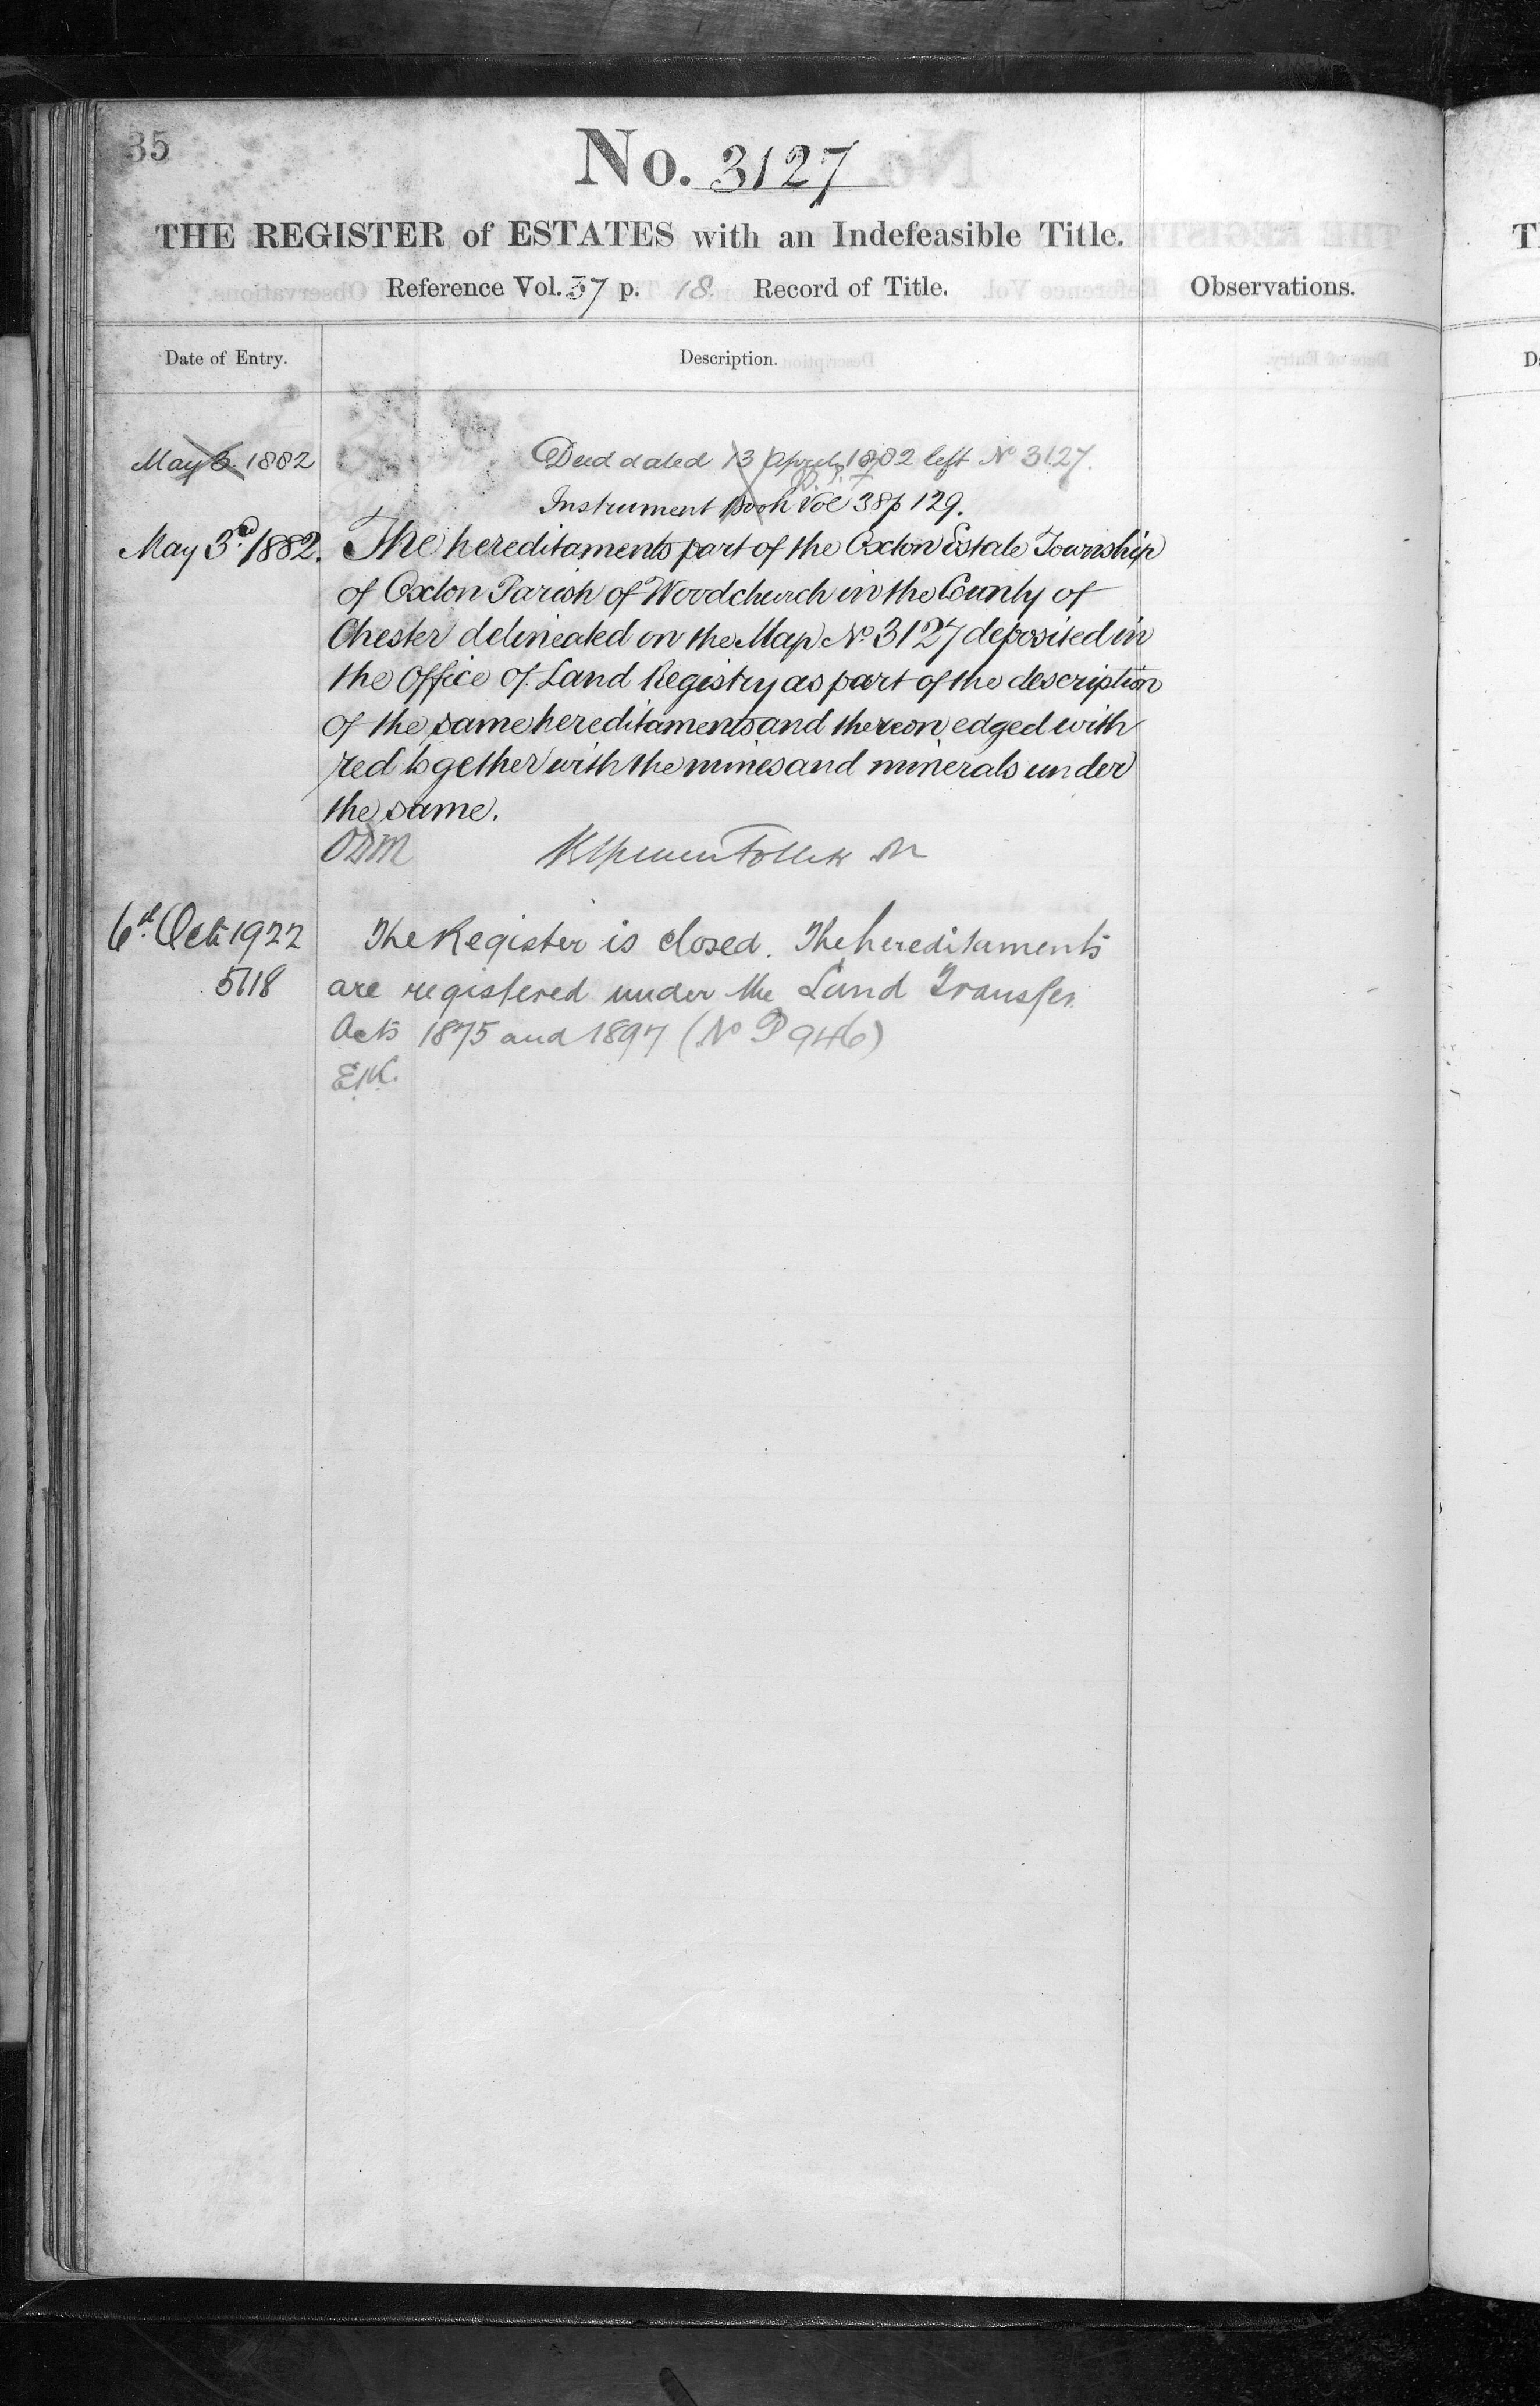 35
No. 3127
THE REGISTER of ESTATES with an Indefeasible Title.
Reference Vol. 37 p. 18 Record of Title.
Observations.
Date of Entry.
Description.
May 6. 1882
Deed dated 13 April 1882 left No 3127.
Instrument Book Vol 38 p 129.
May 3rd 1882.
The hereditaments part of the Oxton Estate Township
of Oxton Parish of Woodchurch in the County of
Chester delineated on the Map No. 3127 deposited in
the Office of Land Registry as part of the description
of the same hereditaments and thereon edged with
red together with the mines and minerals under
the same.
6th Oct 1922
The Register is closed. The hereditaments
5118
are registered under the Land Transfer
Acts 1875 and 1897 (No P 946)